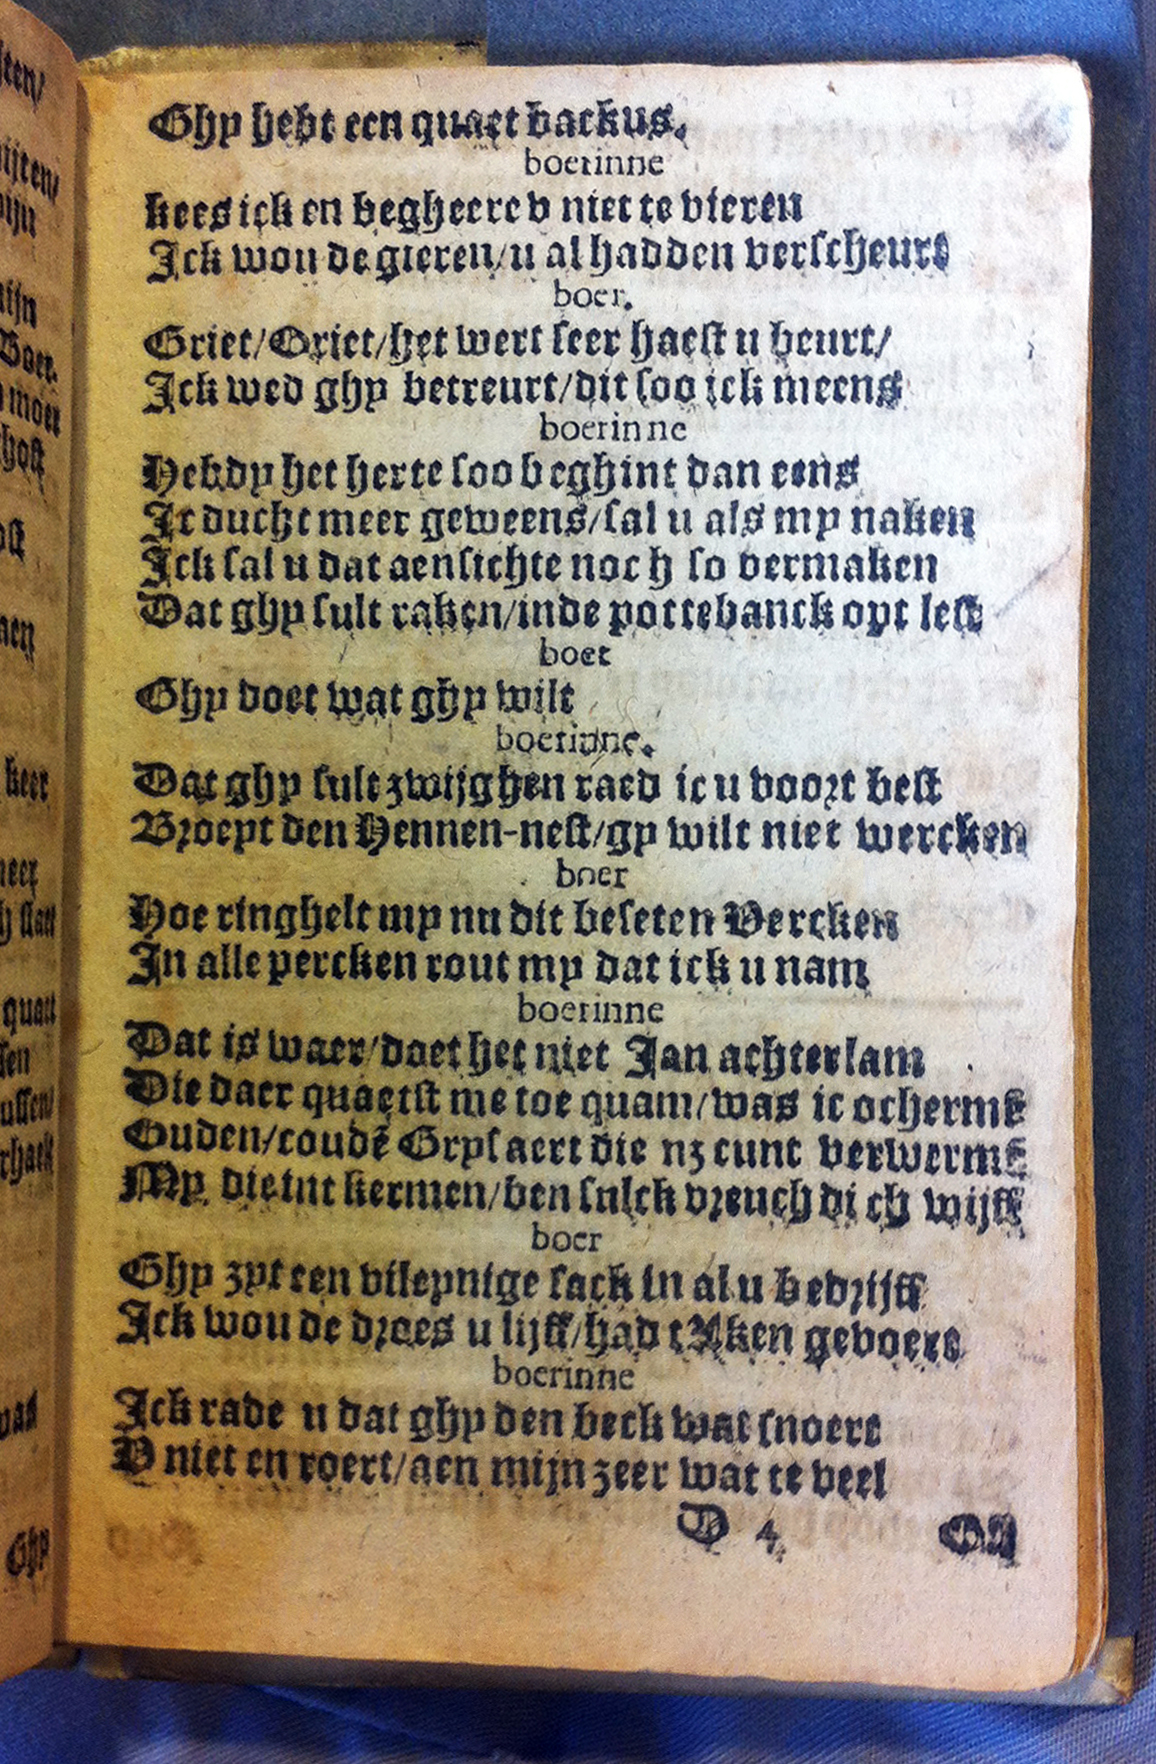 Ghy hebt een quaet backus.
boerinne
kees ick en begheere v niet te vieren
Ick wou de gieren/u al hadden verscheurt
boer.
Griet/Griet/het wert seer haest u beurt/
Ick wed ghy betreurt/dit soo ick meens
boerinne
Hebdy het herte soo beghint dan eens
Ic ducht meer geweens/sal u als my naken
Ick sal u dat aensichte noch so vermaken
Dat ghy sult raken/inde pottebanck opt lest
boer
Ghy doet wat ghy wilt
boerinne.
Dat ghy sult zwijghen raed ic u voort best
Broept den Hennen-nest/gy wilt niet wercken
boer
Hoe ringhelt my nu dit beseten Vercken
In alle percken rout my dat ick u nam
boerinne
Dat is waer/doet het niet Jan achterlam
Die daer quaetst me toe quam/was ic ochermē
Ouden/coudē Grysaert die nz cunt verwermē
My dietnt kermen/ben sulck vreuchdich wijff
boer
Ghy zyt een vileynige sack in al u bedrijff
Ick wou de droes u lijff/had tAken gevoert
boerinne
Ick rade u dat ghy den beck wat snoert
V niet en roert/aen mijn zeer wat te veel
D 4